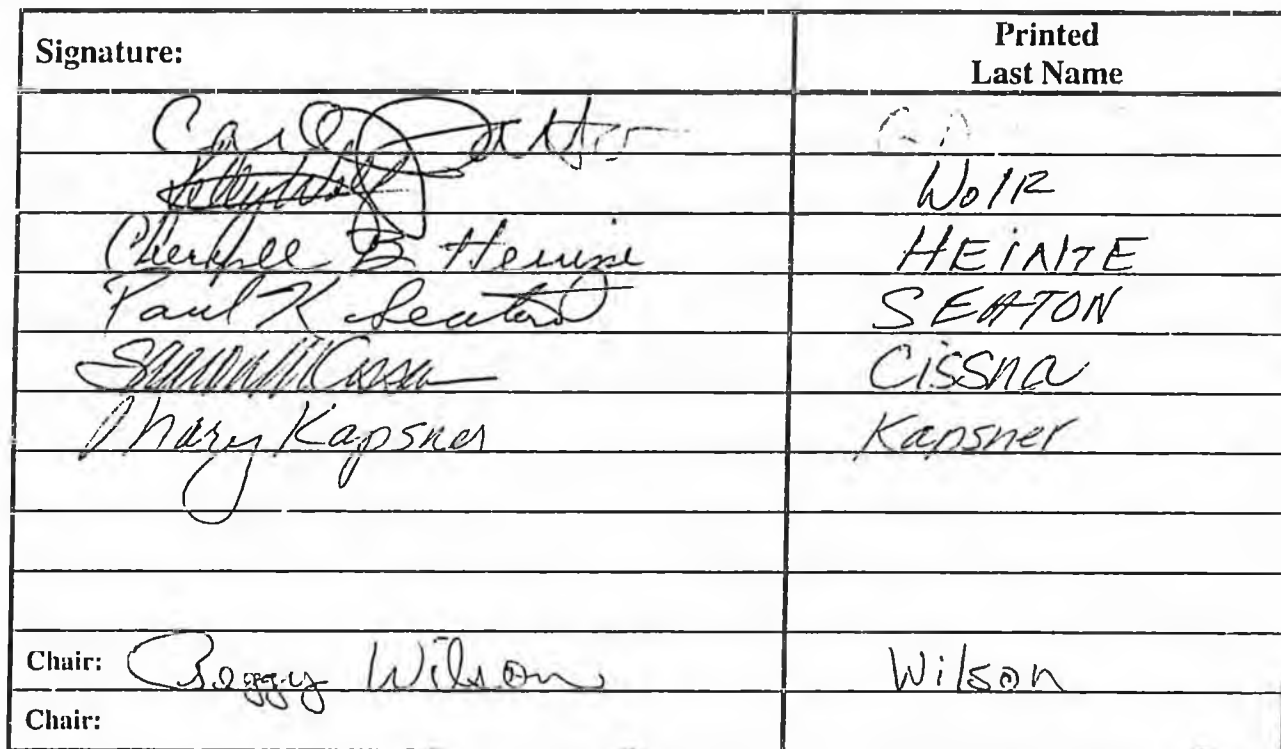 Signature: Printed
Last Name
Carl
Wolf
Cheryll B Heinze HEiNZE
Paul K Seaton SEATON
Cissna
Mary Kapsner Kapsner
Chair: Peggy Wilson Wilson
Chair: